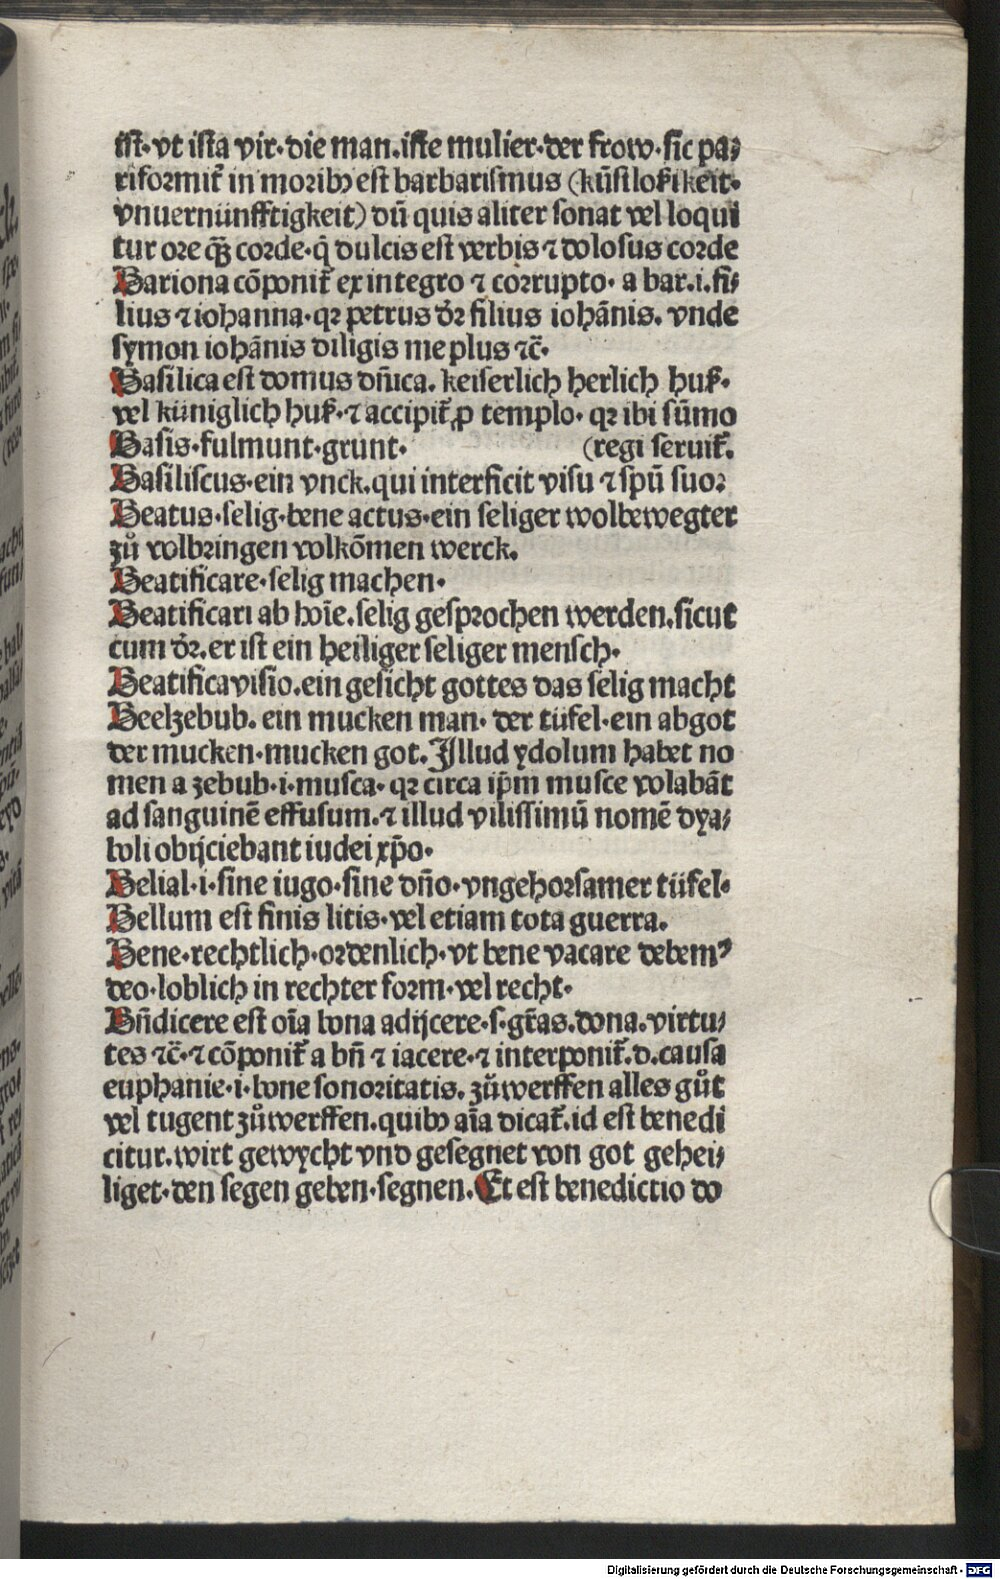 ist· vt ista vir· die man. iste mulier· der frow· sic pa⸗
riformit᷑ in morib⁹ est barbarismus (kūstlosikeit·
vnuernünfftigkeit) dū quis aliter sonat vel loqui
tur ore qȝ corde· q̇ dulcis est verbis ⁊ dolosus corde
Bariona cōponit᷑ ex integro ⁊ corrupto· a bar. i. fi⸗
lius ⁊ iohanna· qꝛ petrus dꝛ filius iohānis. vnde
symon iohānis diligis me plus ⁊c̄·
Basilica est domus dn̄ica. keiserlich herlich huß·
vel küniglich huß· ⁊ accipit᷑ ꝓ templo· qꝛ ibi sūmo
Basis· fulmunt· grunt· (regi seruit᷑.
Basiliscus· ein vnck. qui interficit visu ⁊ spū suoꝛ
Beatus· selig· bene actus· ein seliger wolbewegter
zů volbꝛingen volkōmen werck.
Beatificare· selig machen·
Beatificari ab hoīe. selig gespꝛochen werden. sicut
cum dꝛ. er ist ein heiliger seliger mensch·
Beatifica visio. ein gesicht gottes das selig macht
Beelzebub. ein mucken man· der tüfel· ein abgot
der mucken· mucken got. Illud ydolum habet no
men a zebub· i· musca· qꝛ circa ip̄m musce volabāt
ad sanguinē effusum. ⁊ illud vilissimū nomē dya⸗
boli obijciebant iudei xp̄o·
Belial· i· sine iugo· sine dn̄o· vngehoꝛsamer tüfel·
Bellum est finis litis· vel etiam tota guerra.
Bene· rechtlich· oꝛdenlich· vt bene vacare debem⁹
deo· loblich in rechter foꝛm· vel recht·
Bn̄dicere est oīa bona adijcere· s· gr̄as. dona. virtu⸗
tes ⁊c̄· ⁊ cōponit᷑ a bn̄ ⁊ iacere· ⁊ interponit᷑. d. causa
euphanie· i· bone sonoꝛitatis. zůwerffen alles gůt
vel tugent zůwerffen. quib⁹ aīa dicat᷑. id est benedi
citur. wirt gewycht vnd gesegnet von got gehei⸗
liget· den segen geben· segnen. Et est benedictio do
Digitalisierung gefördert durch die Deutsche Forschungsgemeinschaft · DFG